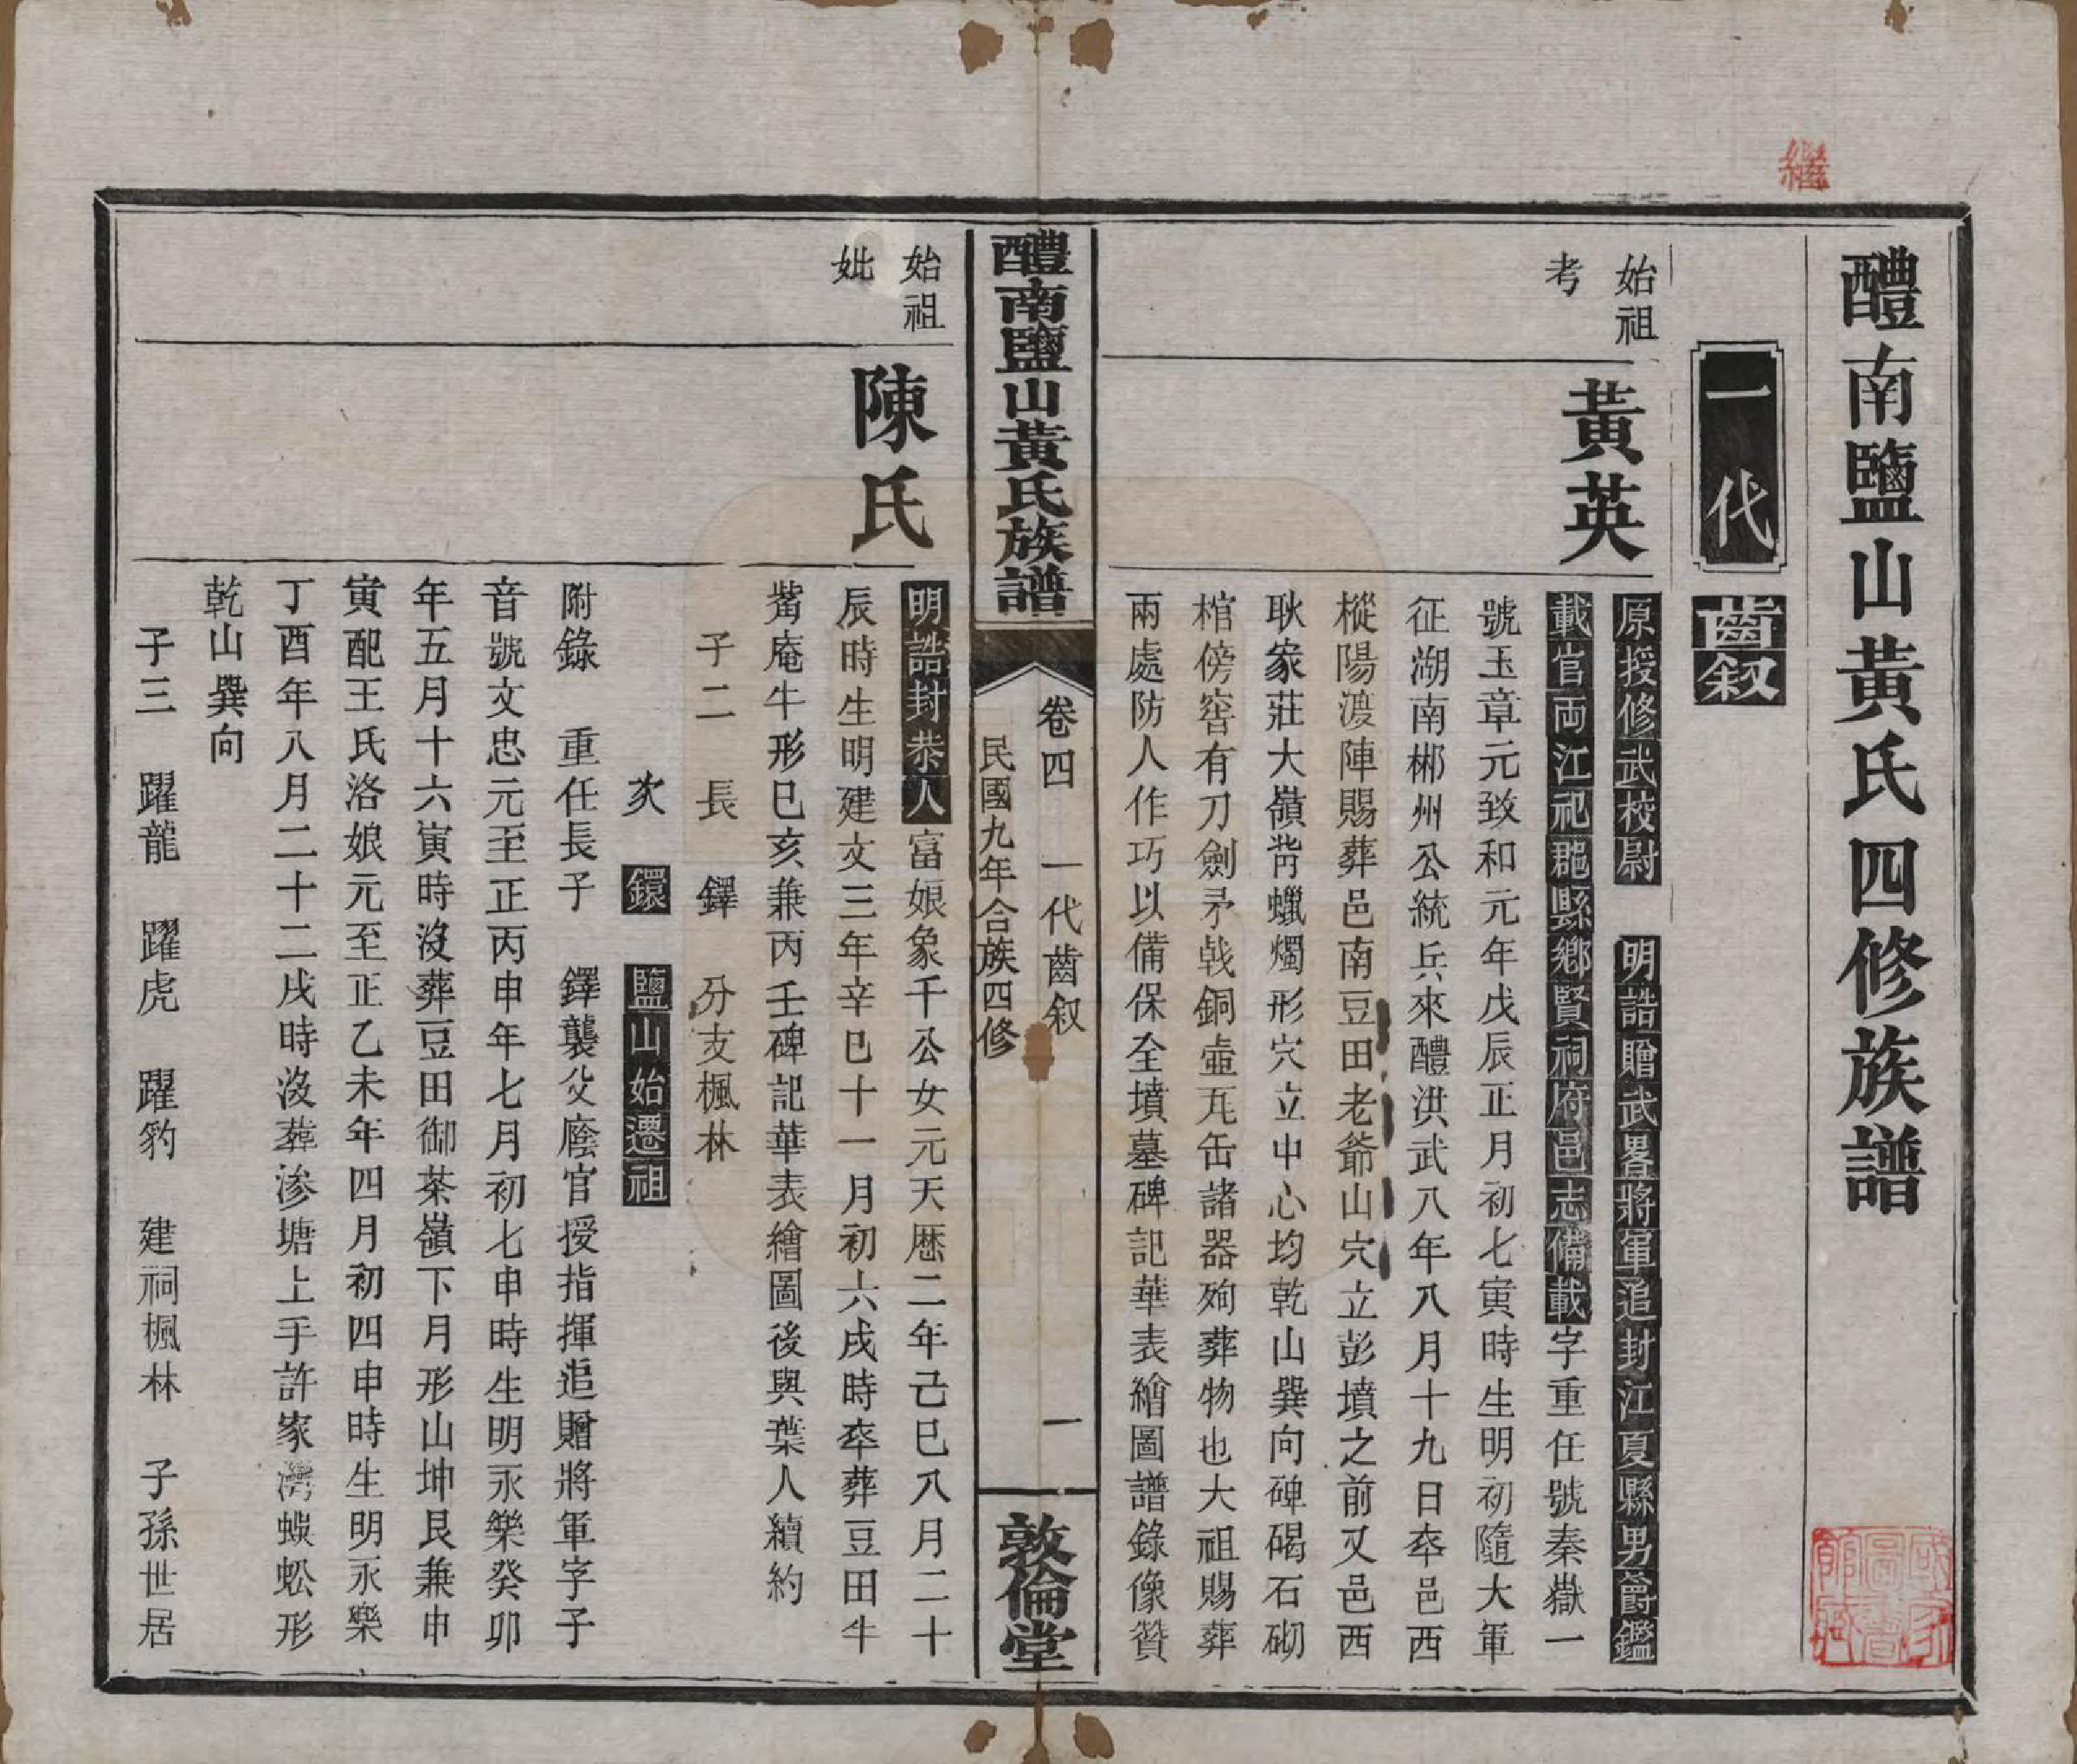 繼
醴南鹽山黃氏四修族譜
一代
齒叙
始祖
考
黃英
原授修武校尉　明誥贈武畧將軍追封江夏縣男爵鑑
載官両江祀郡縣鄉賢祠府邑志備載字重任號秦嶽一
號玉章元致和元年戊辰正月初七寅時生明初隨大軍
征湖南郴州公統兵來醴洪武八年八月十九日卒邑西
樅陽渡陣賜葬邑南豆田老爺山穴立彭墳之前又邑西
耿家莊大嶺背蠟燭形穴立中心均乾山巽向碑碣石砌
棺傍窖有刀劍矛戟銅壺瓦缶諸器殉葬物也大祖賜葬
兩處防人作巧以備保全墳墓碑記華表繪圖譜錄像贊
醴南鹽山黃氏族譜
卷四　一代齒叙　一
民國九年合族四修
敦倫堂
始祖
妣
陳氏
明誥封恭人富娘象千公女元天厯二年己巳八月二十
辰時生明建文三年辛巳十一月初六戌時卒葬豆田牛
觜庵牛形巳亥兼丙壬碑記華表繪圖後與葉人續約
子二　長　鐸　分支楓林
次　鐶　鹽山始遷祖
附錄　重任長子　鐸襲父廕官授指揮追贈將軍字子
音號文忠元至正丙申年七月初七申時生明永樂癸卯
年五月十六寅時沒葬豆田御茶嶺下月形山坤艮兼申
寅配王氏洛娘元至正乙未年四月初四申時生明永樂
丁酉年八月二十二戌時沒葬滲塘上手許家灣蜈蚣形
乾山巽向
子三　躍龍　躍虎　躍豹　建祠楓林　子孫世居